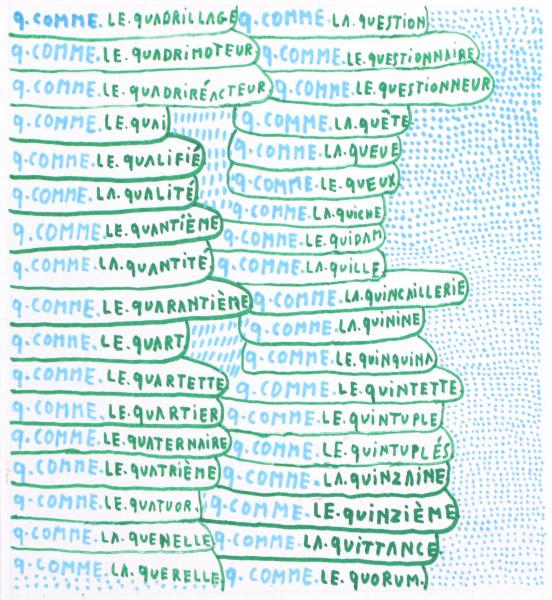 q.COMME.LE.QUADRILLAGE
q.COMME.LE.QUADRIMOTEUR
q.COMME.LE.QUADRIRÉACTEUR
q.COMME.LE.QUAI
q.COMME.LE.QUALIFIÉ
q.COMME.LA.QUALITÉ
q.COMME.LE.QUANTIÈME
q.COMME.LA.QUANTITÉ
q.COMME.LE.QUARANTIÈME
q.COMME.LE.QUART
q.COMME.LE.QUARTETTE
q.COMME.LE.QUARTIER
q.COMME.LE.QUATERNAIRE
q.COMME.LE.QUATRIÈME
q.COMME.LE.QUATUOR.
q.COMME.LA.QUENELLE
q.COMME.LA.QUERELLE
q.COMME.LA.QUESTION
q.COMME.LE.QUESTIONNAIRE
q.COMME.LE.QUESTIONNEUR
q.COMME.LA.QUÊTE
q.COMME.LA.QUEUE
q.COMME.LE.QUEUX
q.COMME.LA.QUICHE
q.COMME.LE.QUIDAM
q.COMME.LA.QUILLE
q.COMME.LA.QUINCAILLERIE
q.COMME.LA.QUININE
q.COMME.LE.QUINQUINA
q.COMME.LE.QUINTETTE
q.COMME.LE.QUINTUPLE
q.COMME.LE.QUINTUPLÉS
q.COMME.LA.QUINZAINE
q.COMME.LE.QUINZIÈME
q.COMME.LA.QUITTANCE
q.COMME.LE.QUORUM.